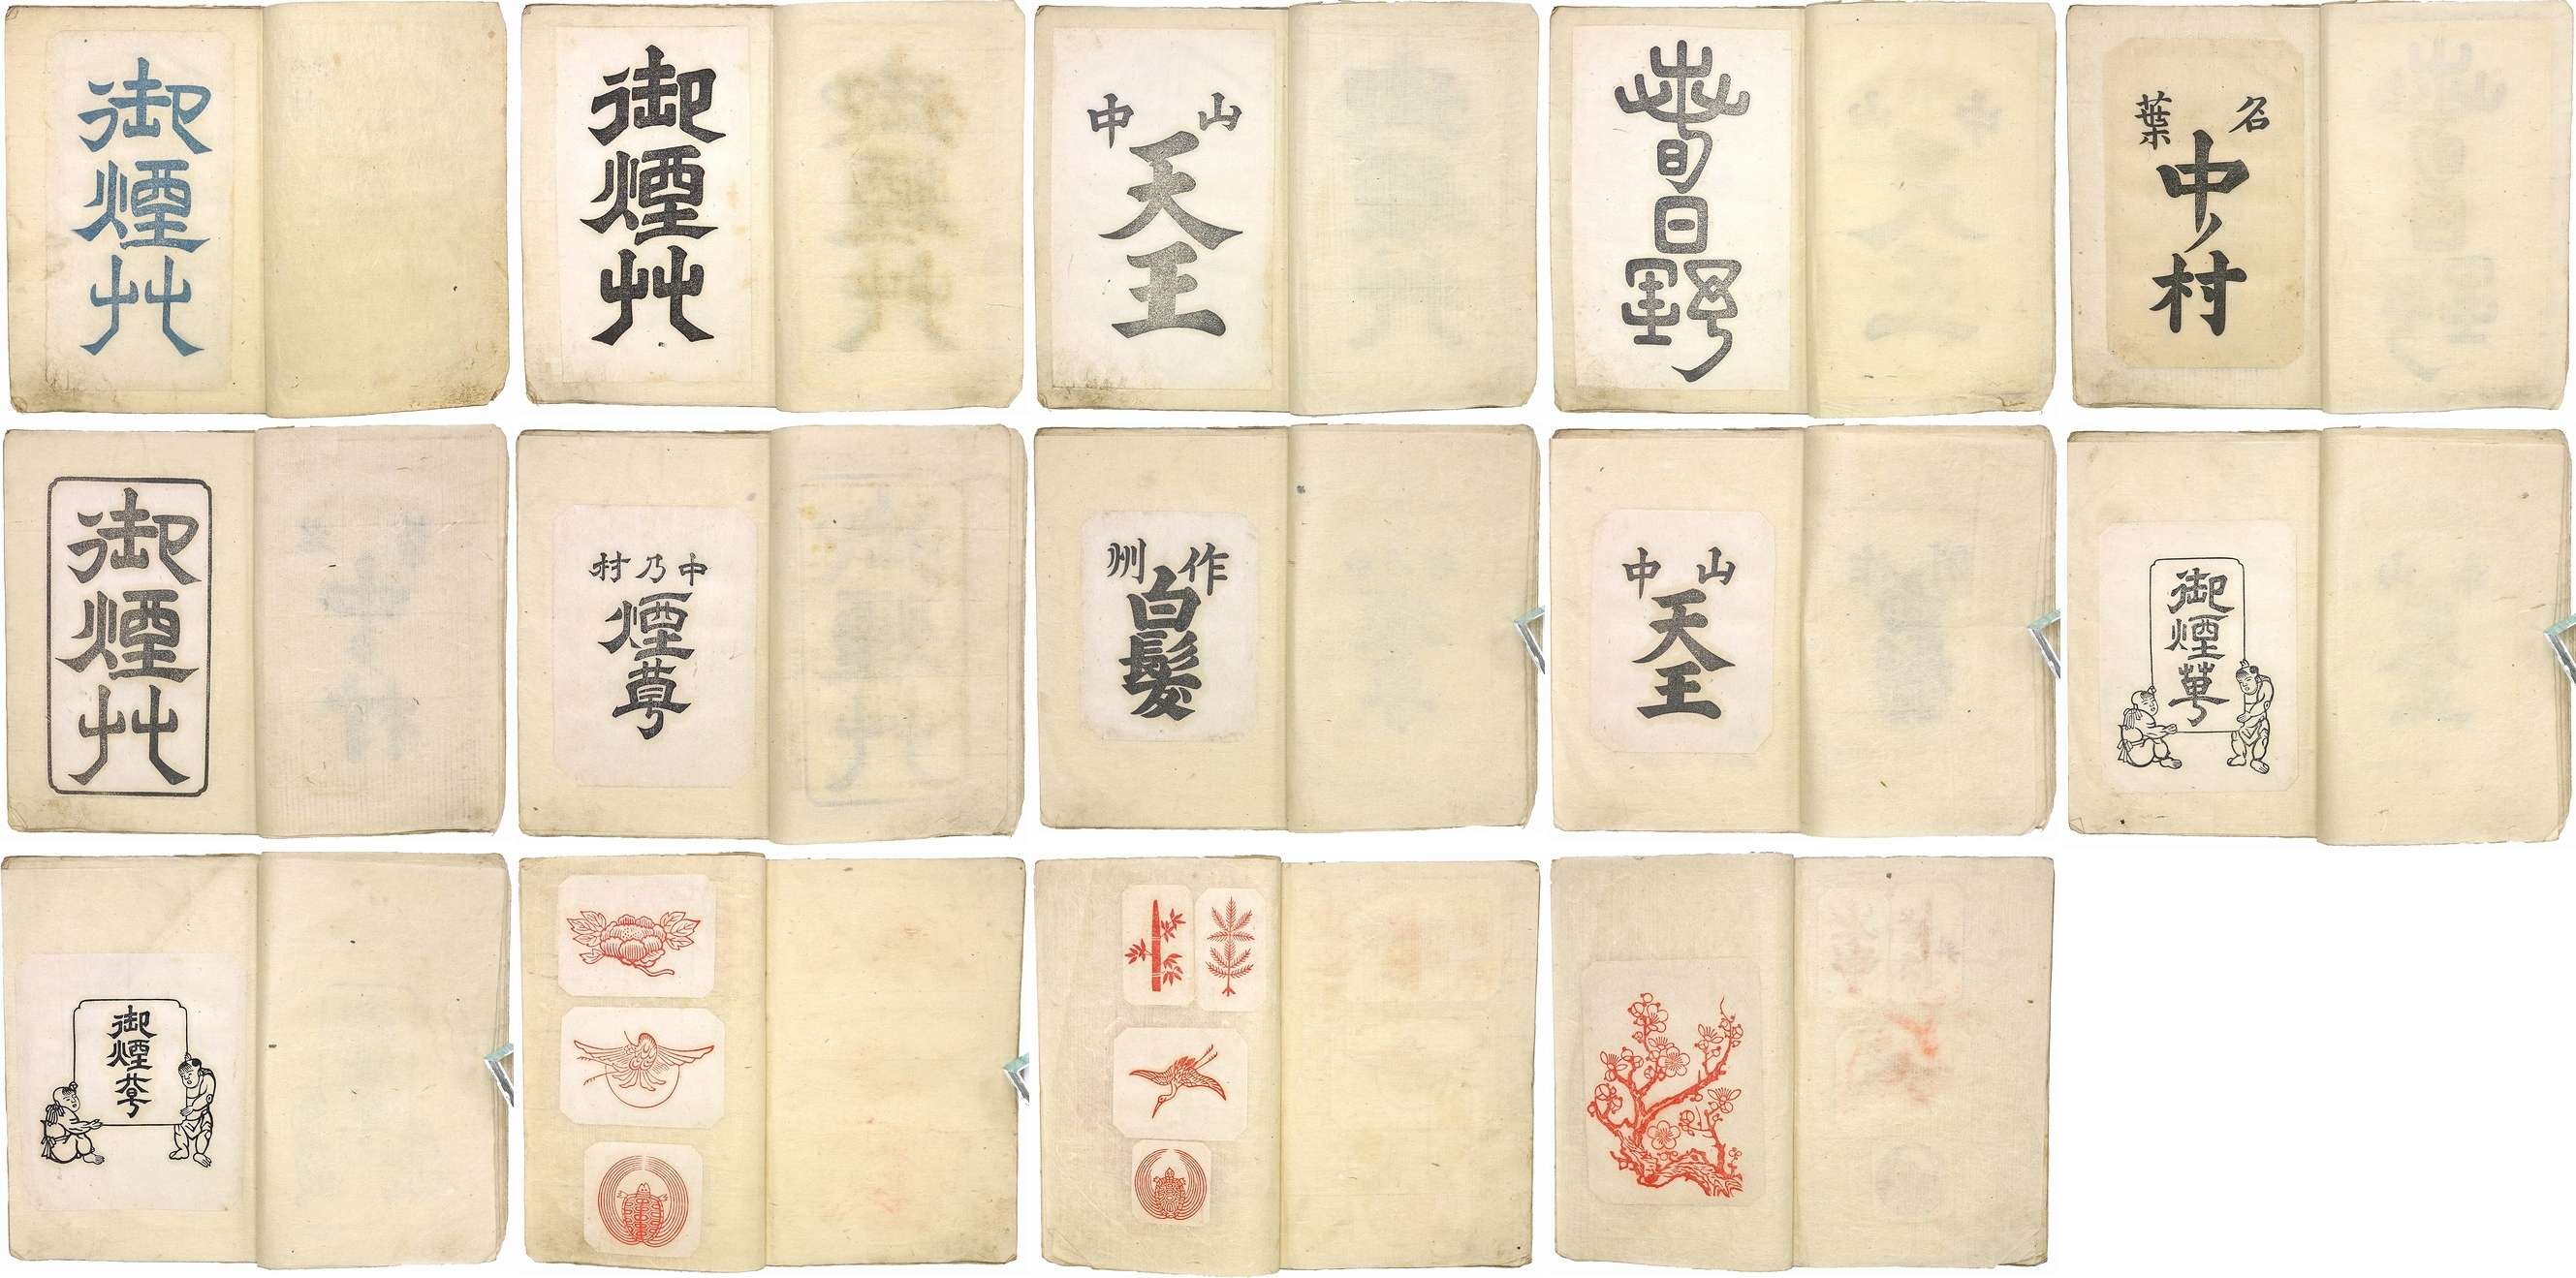 御煙艸
御煙艸
山中
天王
春日野
名葉
中ノ村
御煙艸
中乃村
煙草
作州
白髮
山中
天王
御煙草
御煙草